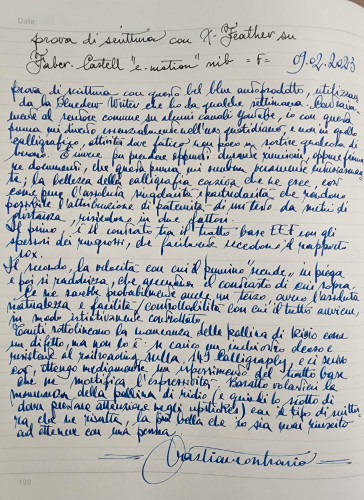 Date:
prova di scrittura con X-Feather su
Faber-Castell "e-motion" nib =F= 09.02.2023
prova di scrittura con questo bel blu autoprodotto, utilizzan
do la Bluedew Writer che ho da qualche settimana. Contraria
mente al sentore comune su alcuni canali YouTube, io con questa
punta mi diverto essenzialmente nell'uso quotidiano e non in quello
calligrafico, attività dove fatico non poco a sortire qualcosa di
buono. E invece per prendere appunti durante riunioni, oppure firma
re documenti, che questa punta mi
te; la bellezza della calligrafia corsiva che ne esce, così
come pure l'assoluta singolarità che rendono
possibile l'attribuzione di paternità di un testo da metri di
distanza, risiedono in due fattori.
Il primo, è il contrasto tra il tratto base EEF con gli
spessori dei rongrossi, che facilmente eccedono il rapporto
10x.
Il secondo, la velocità con cui il pennino "scende" in piega
e poi si raddrizza, che generano il contrasto di cui sopra.
Ce ne sarebbe probabilmente anche un terzo, ovvero l'assoluta
naturalezza e facilità/controllabilità con cui il tutto avviene,
in modo istintivamente controllato.
Tanti sottolineano la mancanza della pallina di iridio come
un difetto, ma non lo è: se carico un inchiostro denso e
resistente al railroading sulla 149 Calligraphy, e scrivo
così, ottengo mediamente un ispessimento del tratto base
che ne mortifica l'espressività. Baratto volentieri la
mancanza della pallina di iridio (e quindi lo scotto di
dover prestare attenzione negli upstrokes) con il tipo di scrittu
ra che ne risulta, la più bella che io sia mai riuscito
ad ottenere con una penna.